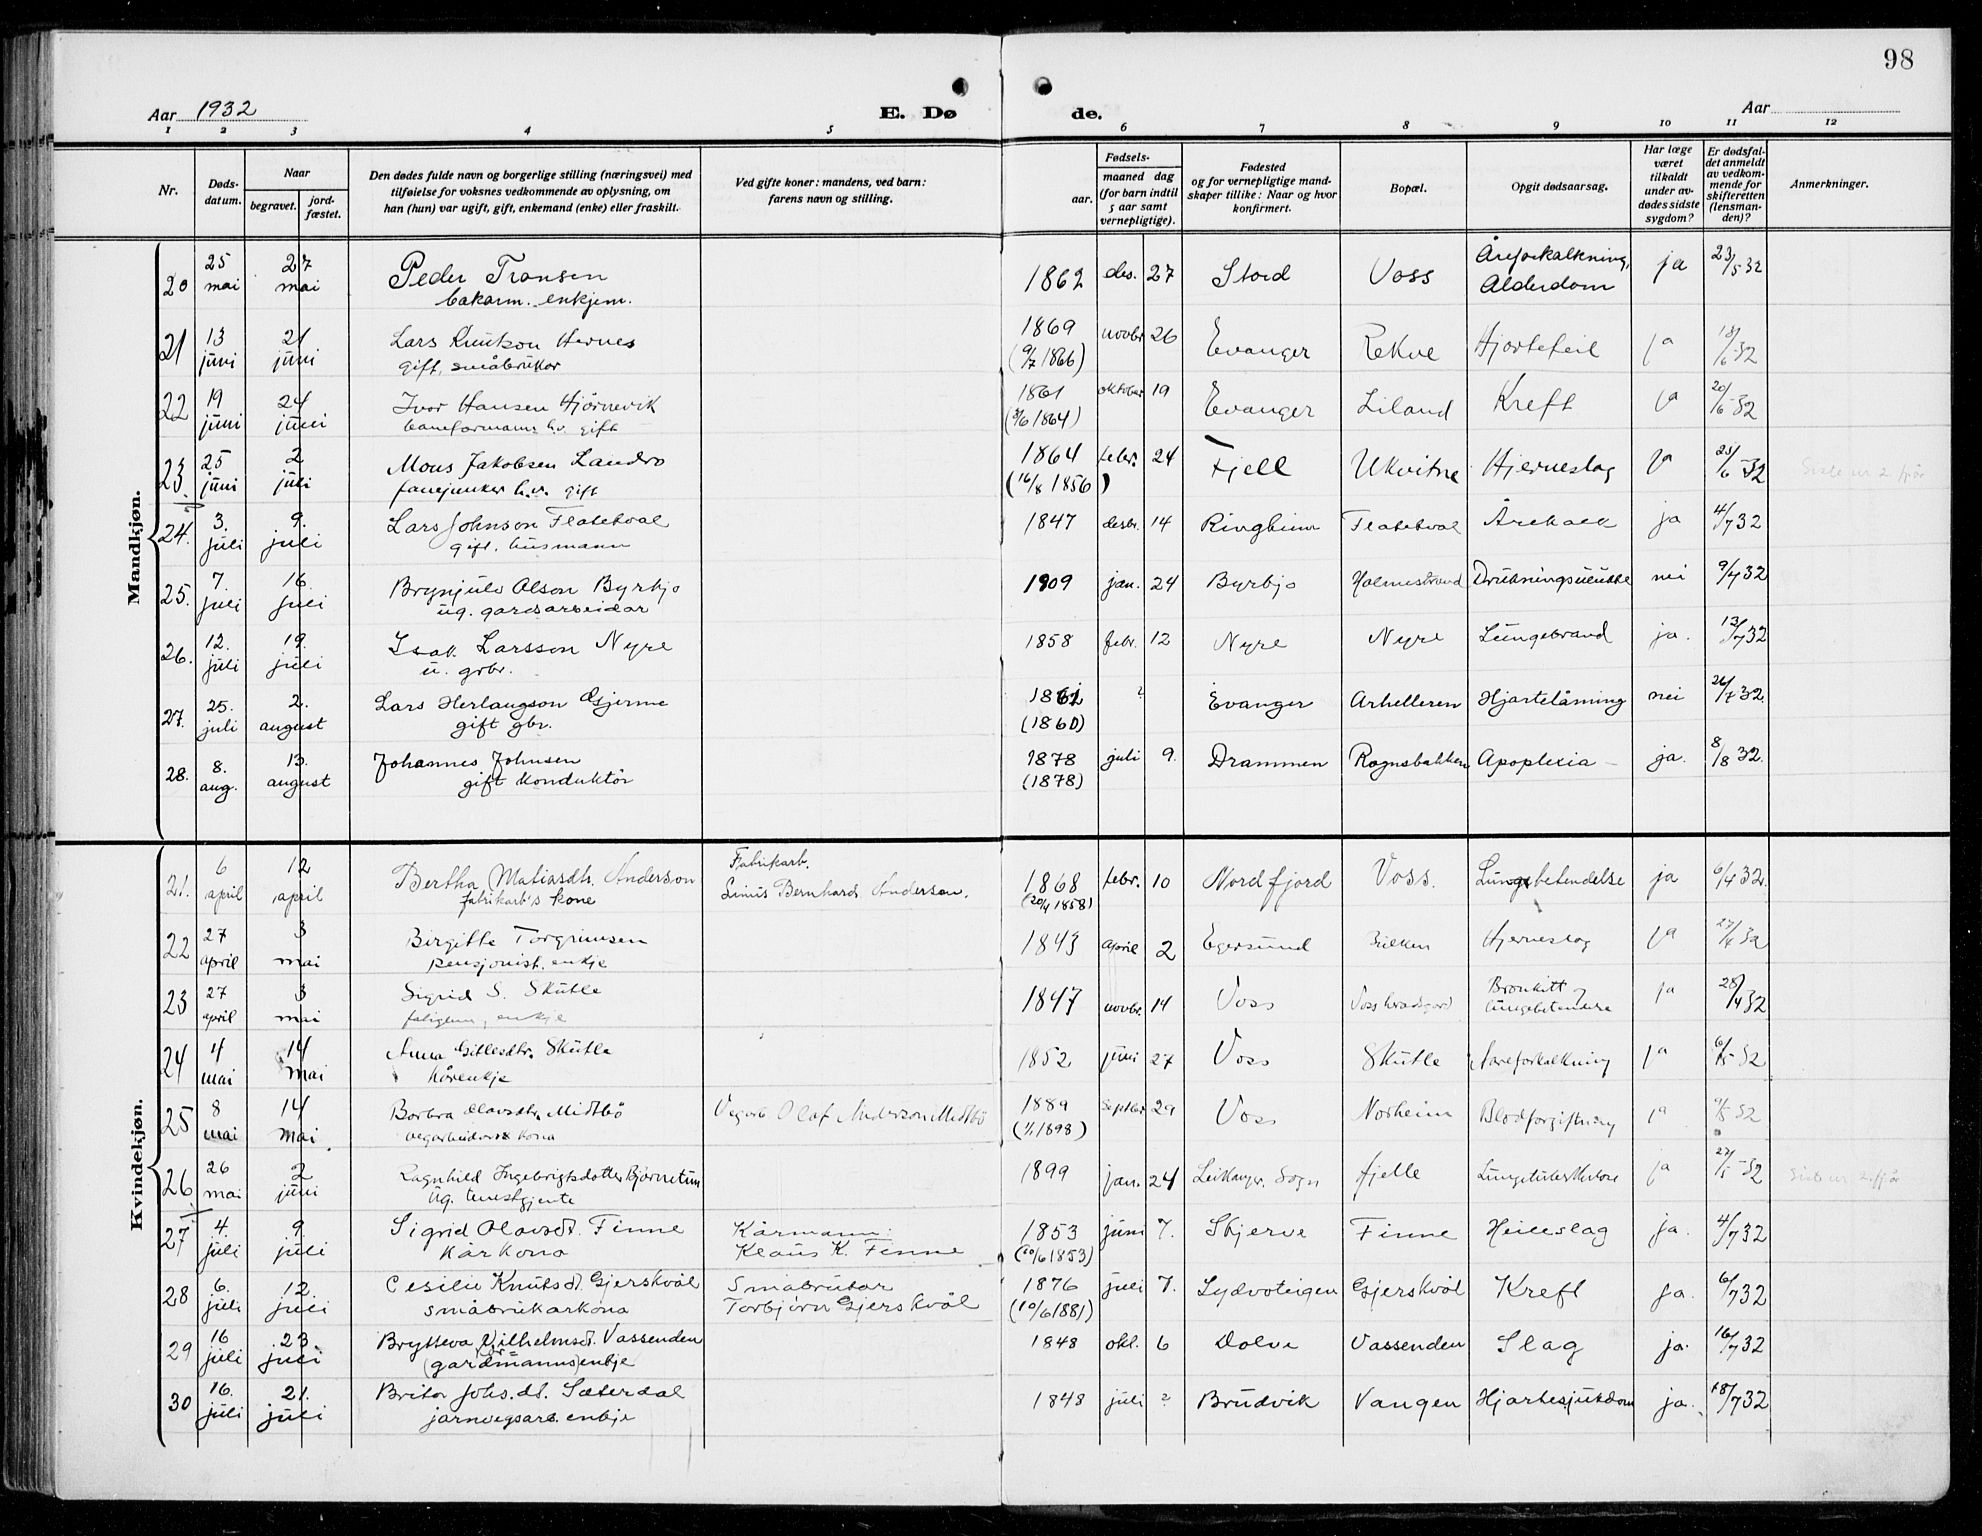 98
Aar 1932
E. Dø de.
Aar
1 2 3 4 5 6 7 8 9 10 11 12
Nr.
Døds-datum.
Naar
begravet.
jord-fæstet.
Den dødes fulde navn og borgerlige stilling (næringsvei) med
tilføielse for voksnes vedkommende av oplysning, om
han (hun) var ugift, gift, enkemand (enke) eller fraskilt.
Ved gifte koner: mandens, ved barn:
farens navn og stilling.
Fødsels-
aar.
maaned dag
(for barn indtil
5 aar samt
vernepligtige).
Fødested
og for vernepligtige mand-
skaper tillike: Naar og hvor
konfirmert.
Bopæl.
Opgit dødsaarsag.
Har læge
været
tilkaldt
under av-
dødes sidste
sygdom?
Er dødsfal-
det anmeldt
av vedkom-
mende for
skifteretten
(lensman-
den)?
Anmerkninger.
Mandkjøn.
20 25 mai 27 mai Peder Transen 1862 des. 27 Stord Voss Åreforkalkning, Alderdom ja 23/5 32
bakarm. enkjem.
21 13 juni 21 juni Lars Knutson Hernes 1869 novbr 26 Evanger Rekve Hjartefeil ja 32
gift, småbrukar (9/7 1866)
22 19 juni 24 juni Ivor Hansen Hjørnevik 1861 oktober 19 Evanger Liland Kreft ja 20/6 32
baneformann h.v. gift (1864)
23 25 juni 2 juli Mons Jakobsen Landro 1864 febr. 24 Fjell Ukvitne Hjerneslag ja 25/6 32
fanejunker h.v. gift (16/8 1856)
24. 3. juli 9. juli Lars Johnson Flatekval 1847 desbr. 14 Ringheim Flatekval Årekalk ja 4/7 32
gift. husmann
25. 7. juli 16. juli Brynjulv Olson Byrkjo 1909 jan. 24 Byrkjo Holmestrand Drukningsulukke nei 9/7 32
ug. gardsarbeidar
26. 12. juli 19. juli Isak Larsson Nyre 1858 febr. 12 Nyre Nyre Lungebrand ja. 13/7 32
u. grbr.
27. 25. juli 2. august Lars Herlaugson Gjerme 1861 ? Evanger Arhelleren Hjartelåming nei 26/7 32
gift gbr. (1860)
28. 8. aug. 13. august Johannes Johnsen 1878 juli 9. Drammen Rognsbakken Apoplexia ja. 8/8 32.
gift konduktör (1878)
Kvindekjøn.
21. 6 april 12 april Bertha Matiasdtr. Anderson Fabrikarb. Linus Bernhard Anderson. 1868 febr. 10 Nordfjord Voss. Lungebetendelse ja 6/4 32.
fabrikarb's kone (20/4 1858)
22 27 april 3 mai Birgitte Torgrimsen 1843 april 2 Egersund Bulken Hjerneslag ja 27/4 32
pensjonist, enkje
23 27 april 3 mai Sigrid S. Skutle 1847 novbr. 14 Voss Bronkitt og lungebetendelse ja 28/4 32
enkje
24 4 mai 14 mai Anna Gitlesdtr. Skutle 1852 juni 27 Voss Skutle Aareforkalkning ja 6/5 32
kårenkje
25 8 mai 14 mai Borbra Olavsdtr. Midtbö Vegarb Olaf Anderson Midtbö 1889 septbr 29 Voss Norheim Blodforgiftning ja 9/5 32
vegarbeidars kona (1/1 1898)
26 26 mai 2 juni Ragnhild Ingebrigtsdotter Bjørnetun 1899 jan. 24 Leikanger, Sogn fjelle Lungetuberkulose ja 27/5 32
ug. tenestgjente
27 4. juli 9. juli Sigrid Olavsdt. Finne Kårmann Klaus K. Finne 1853 juni 7. Skjerve Finne Heileslag ja. 4/7 32
kårkona (20/6 1853)
28 6. juli 12. juli Cesilie Knutsd. Gjerskvål Småbrukar Torbjørn Gjerskvål 1876 juli 7. Lydvoteigen Gjerskvål Kreft ja. 6/7 32
småbrukarkona (10/6 1881)
29 16 juli 23. juli Brytteva Vilhelmsd. Vassenden 1848 okt. 6 Dolve Vassenden Slag ja. 16/7 32
(gardmanns) enkje
30 16. juli 21. juli Brita Johs.dt. Sæterdal 1848 juli ? Brudvik Vangen Hjartesjukdom ja. 18/7 32
jarnvegsarb. enkje